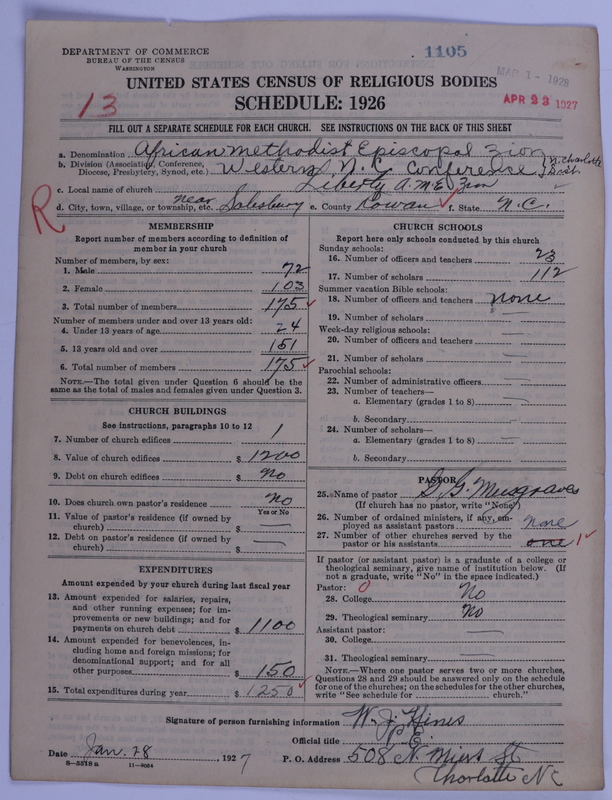 DEPARTMENT OF COMMERCE
BUREAU OF THE CENSUS
WASHINGTON
1105
MAR 1 - 1928
APR 23 1927
13
UNITED STATES CENSUS OF RELIGIOUS BODIES
SCHEDULE: 1926
FILL OUT A SEPARATE SCHEDULE FOR EACH CHURCH. SEE INSTRUCTIONS ON THE BACK OF THIS SHEET
a. Denomination African Methodist Episcopal Zion
b. Division (Association, Conference, Diocese, Presbytery, Synod, etc.) Western N.C. Conference N. Charlotte Dist.
c. Local name of church Liberty A.M.E. Zion
d. City, town, village, or township, etc. near Salisbury e. County Rowan f. State N.C.
R
MEMBERSHIP
Report number of members according to definition of member in your church
Number of members, by sex:
1. Male 72
2. Female 103
3. Total number of members 175
Number of members under and over 13 years old:
4. Under 13 years of age 24
5. 13 years old and over 151
6. Total number of members 175
NOTE.—The total given under Question 6 should be the same as the total of males and females given under Question 3.
CHURCH BUILDINGS
See instructions, paragraphs 10 to 12
7. Number of church edifices 1
8. Value of church edifices $ 1200
9. Debt on church edifices $ No
10. Does church own pastor's residence No
Yes or No
11. Value of pastor's residence (if owned by church) $ —
12. Debt on pastor's residence (if owned by church) $ —
EXPENDITURES
Amount expended by your church during last fiscal year
13. Amount expended for salaries, repairs, and other running expenses; for improvements or new buildings; and for payments on church debt $ 1100
14. Amount expended for benevolences, including home and foreign missions; for denominational support; and for all other purposes $ 150
15. Total expenditures during year $ 1250
CHURCH SCHOOLS
Report here only schools conducted by this church
Sunday schools:
16. Number of officers and teachers 23
17. Number of scholars 112
Summer vacation Bible schools:
18. Number of officers and teachers none
19. Number of scholars —
Week-day religious schools:
20. Number of officers and teachers —
21. Number of scholars —
Parochial schools:
22. Number of administrative officers —
23. Number of teachers—
a. Elementary (grades 1 to 8) —
b. Secondary
24. Number of scholars—
a. Elementary (grades 1 to 8) —
b. Secondary
PASTOR
25. Name of pastor S. G. Musgraves
(If church has no pastor, write "None")
26. Number of ordained ministers, if any, employed as assistant pastors none
27. Number of other churches served by the pastor or his assistants one 1
If pastor (or assistant pastor) is a graduate of a college or theological seminary, give name of institution below. (If not a graduate, write "No" in the space indicated.)
Pastor: 0
28. College No
29. Theological seminary No
Assistant pastor:
30. College —
31. Theological seminary —
NOTE.—Where one pastor serves two or more churches, Questions 28 and 29 should be answered only on the schedule for one of the churches; on the schedules for the other churches, write "See schedule for ________ church."
Signature of person furnishing information W. J. Hines
Official title P.E.
Date Jan. 28, 1927 P. O. Address 508 N. Miers St
Charlotte N.C.
8—5518 a 11—9064